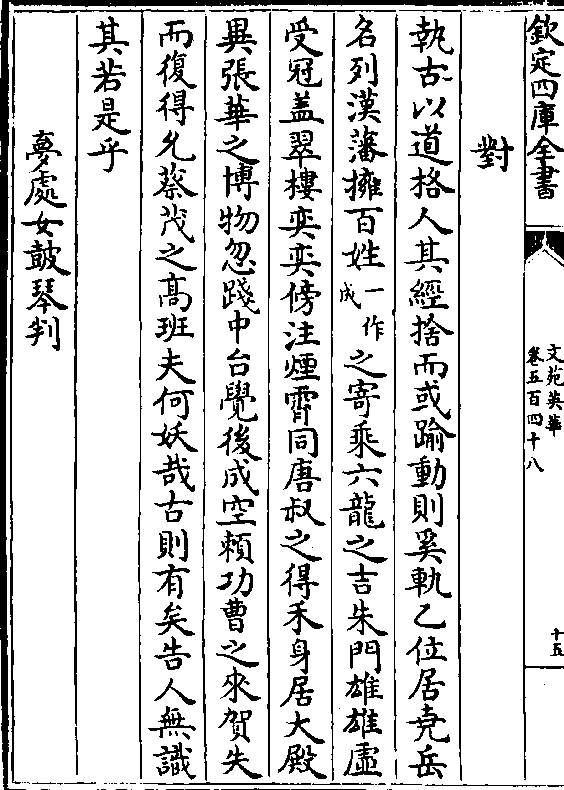 欽定四庫全書
文苑英華
卷五百四十八
十五
對
執古以道格人其經捨而或踰動則奚軌乙位居堯岳
名列漢藩擁百姓一作成之寄乘六龍之吉朱門雄雄虛
受冠盖翠樓奕奕傍注煙霄同唐叔之得禾身居大殿
異張華之博物忽踐中台覺後成空頼功曹之來賀失
而復得允蔡茂之髙班夫何妖哉古則有矣告人無識
其若是乎
夢處女鼓琴判